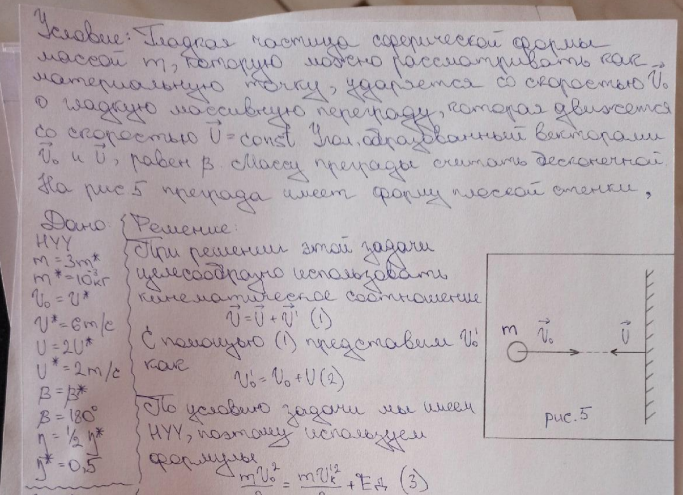 Условие: Гладкая частица сферической формы
массой m, которую можно рассматривать как
материальную точку, ударяется со скоростью V⃗₀
о гладкую массивную преграду, которая движется
со скоростью U⃗ = const Угол, образованный векторами
V⃗₀ и U⃗, равен β. Массу преграды считать бесконечной
На рис 5 преграда имеет форму плоской стенки,
Дано
НУУ
m = 3m*
m* = 10⁻³кг
V₀ = V*
V* = 6 m/c
U = 2U*
U* = 2 m/c
β = β*
β = 180°
η = 1/2 η*
η* = 0,5
Решение:
При решении этой задачи
целесообразно использовать
кинематическое соотношение
V⃗ = U⃗ + V⃗' (1)
С помощью (1) представим V₀'
как
V₀' = V₀ + U (2)
По условию задачи мы имеем
НУУ, поэтому используем
формулы
mV₀'² = mVₖ'² + Eд (3)
m
V⃗₀
U⃗
рис. 5